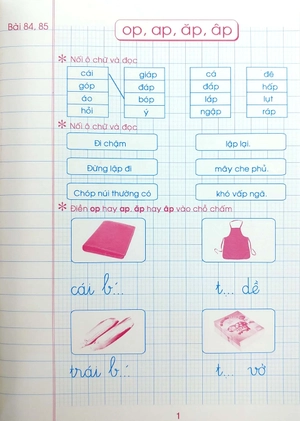 Bài 84, 85
op, ap, ăp, âp
* Nối ô chữ và đọc
cái giáp cá đê
góp đáp đắp hấp
áo bóp lắp lụt
hỏi ý ngập ráp
* Nối ô chữ và đọc
Đi chậm lặp lại.
Đừng lặp đi mây che phủ.
Chóp núi thường có khó vấp ngã.
* Điền op hay ap, ăp hay âp vào chỗ chấm
cái b... t... dề
trái b... t... vở
1